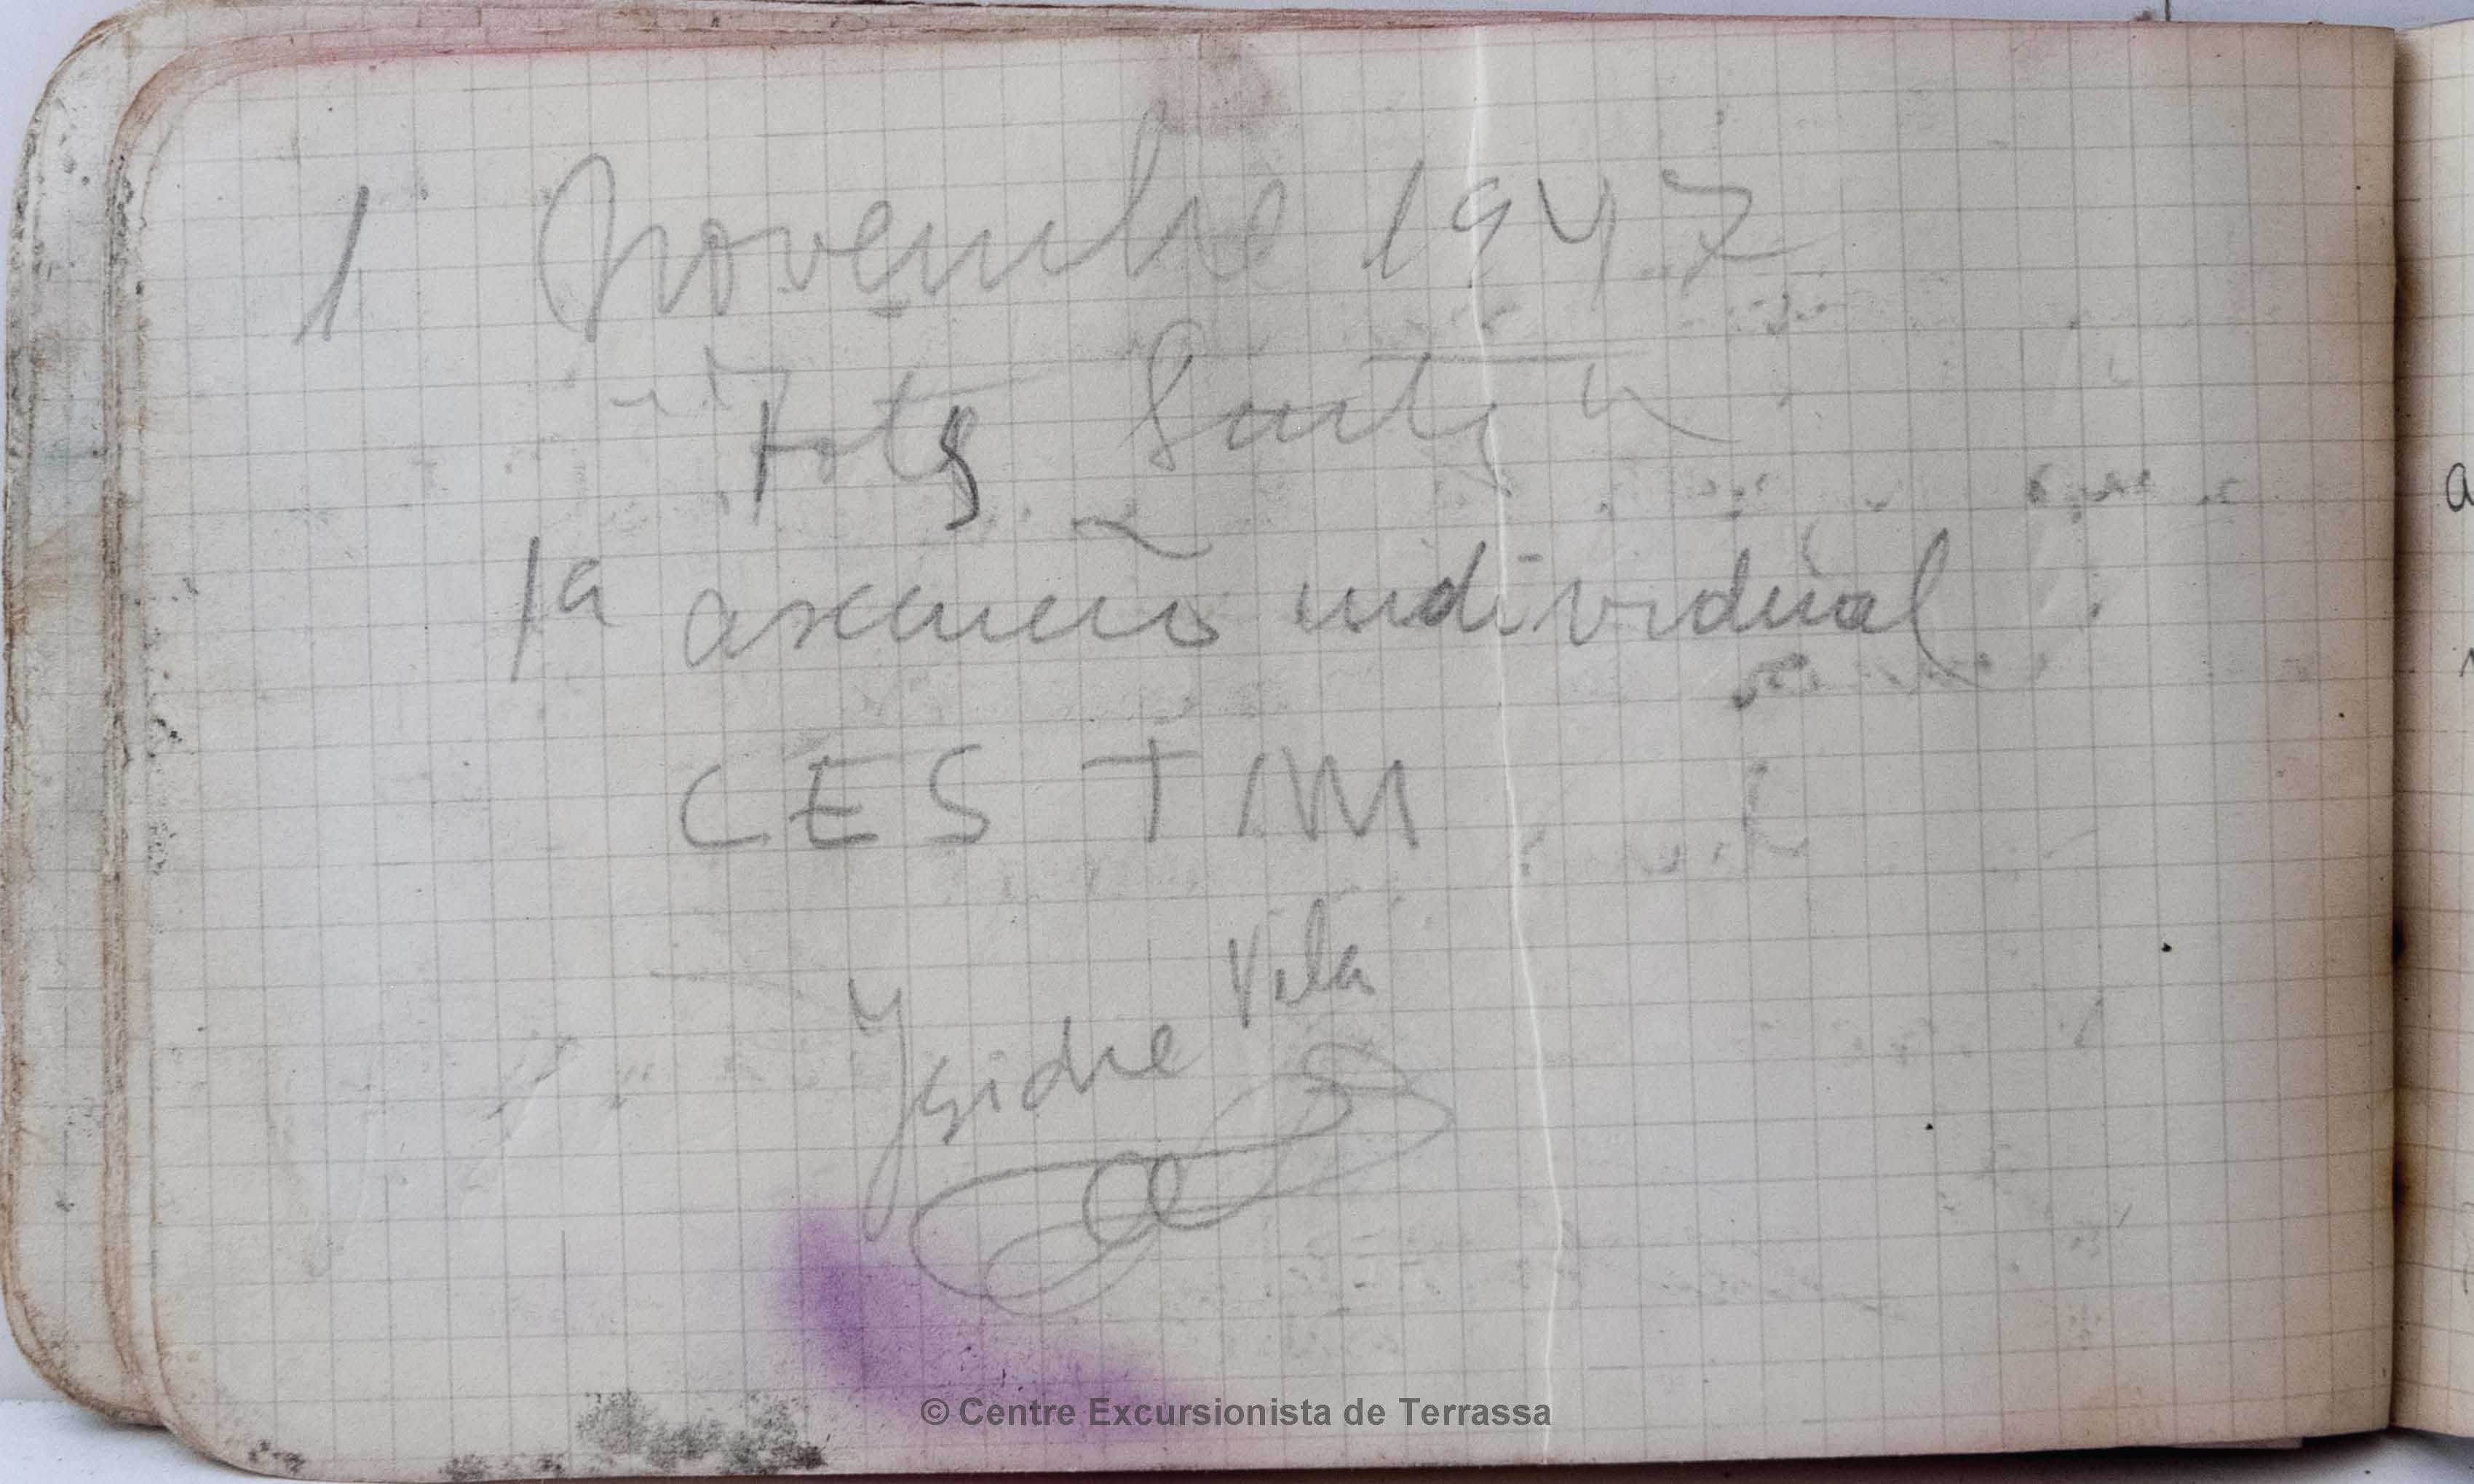 1 Novembre 1947
Tots Sants
1a ascensió individual
C E S T I M
Vila
Ysidre
© Centre Excursionista de Terrassa